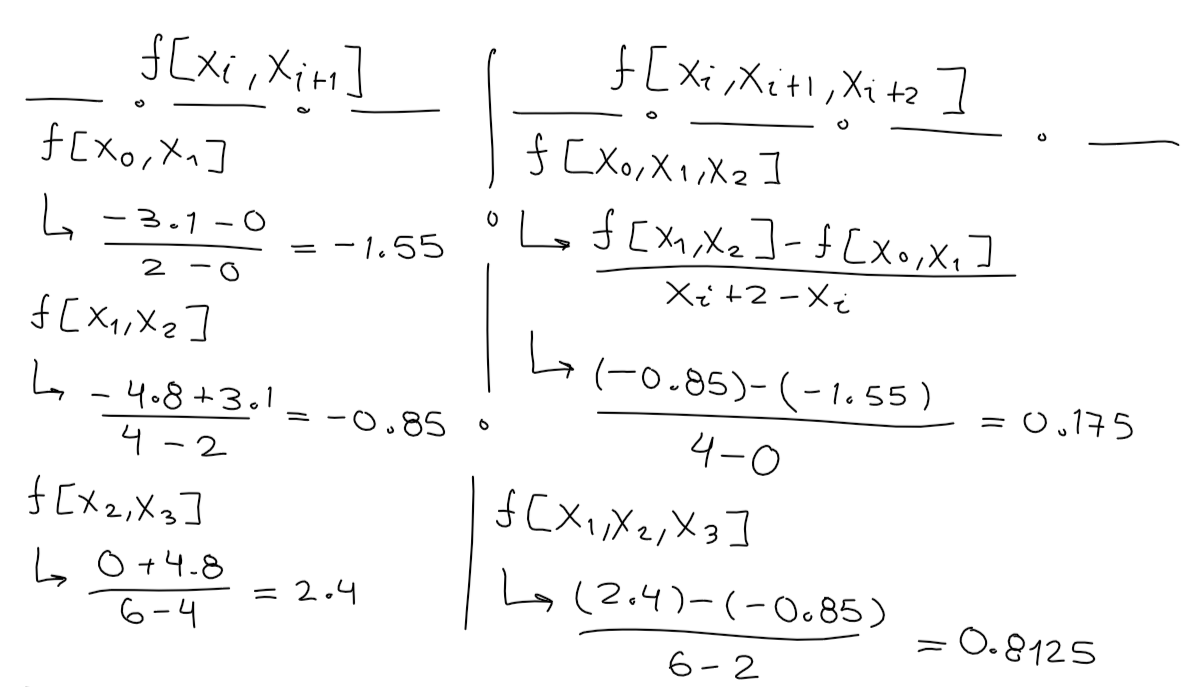 f[xi, xi+1]
f[x0, x1]
↳ (-3.1 - 0) / (2 - 0) = -1.55
f[x1, x2]
↳ (-4.8 + 3.1) / (4 - 2) = -0.85
f[x2, x3]
↳ (0 + 4.8) / (6 - 4) = 2.4
f[xi, xi+1, xi+2]
f[x0, x1, x2]
↳ (f[x1, x2] - f[x0, x1]) / (xi+2 - xi)
↳ ((-0.85) - (-1.55)) / (4 - 0) = 0.175
f[x1, x2, x3]
↳ ((2.4) - (-0.85)) / (6 - 2) = 0.8125